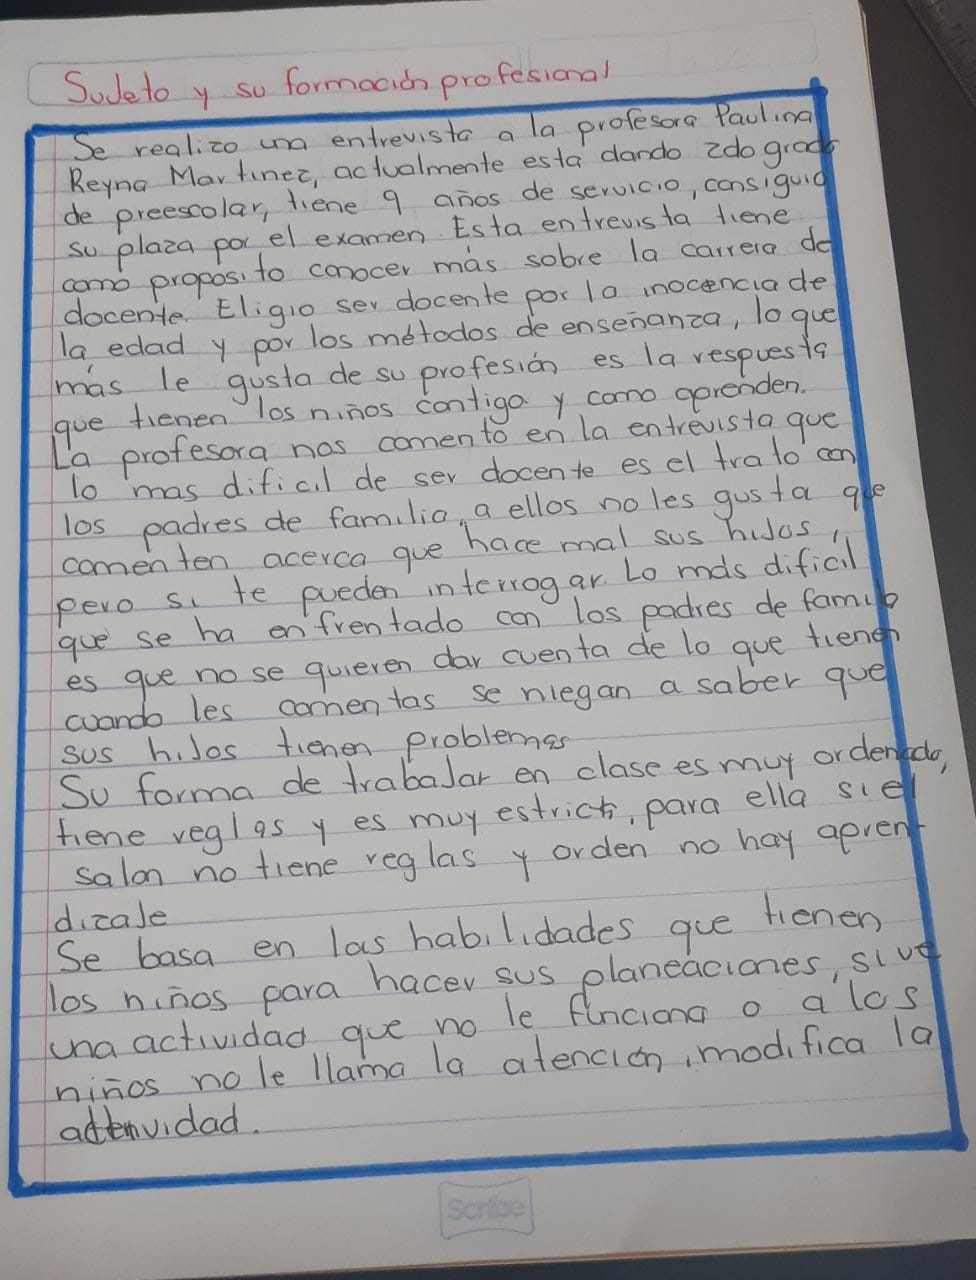 Sujeto y su formación profesional
Se realizo una entrevista a la profesora Paulina
Reyna Martinez, actualmente esta dando 2do grado
de preescolar, tiene 9 años de servicio, consiguio
su plaza por el examen. Esta entrevista tiene
como proposito conocer más sobre la carrera de
docente. Eligio ser docente por la inocencia de
la edad y por los métodos de enseñanza, lo que
más le gusta de su profesión es la respuesta
que tienen los niños contigo y como aprenden.
La profesora nos comento en la entrevista que
lo mas dificil de ser docente es el trato con
los padres de familia, a ellos no les gusta que
comenten acerca que hace mal sus hijos,
pero si te pueden interrogar. Lo más dificil
que se ha enfrentado con los padres de familia
es que no se quieren dar cuenta de lo que tienen
cuando les comentas se niegan a saber que
sus hijos tienen problemas
Su forma de trabajar en clase es muy ordenada,
tiene reglas y es muy estricta, para ella si el
salon no tiene reglas y orden no hay apren-
dizaje
Se basa en las habilidades que tienen
los niños para hacer sus planeaciones, si ve
una actividad que no le funciona o a los
niños no le llama la atención, modifica la
actividad.
Scribe